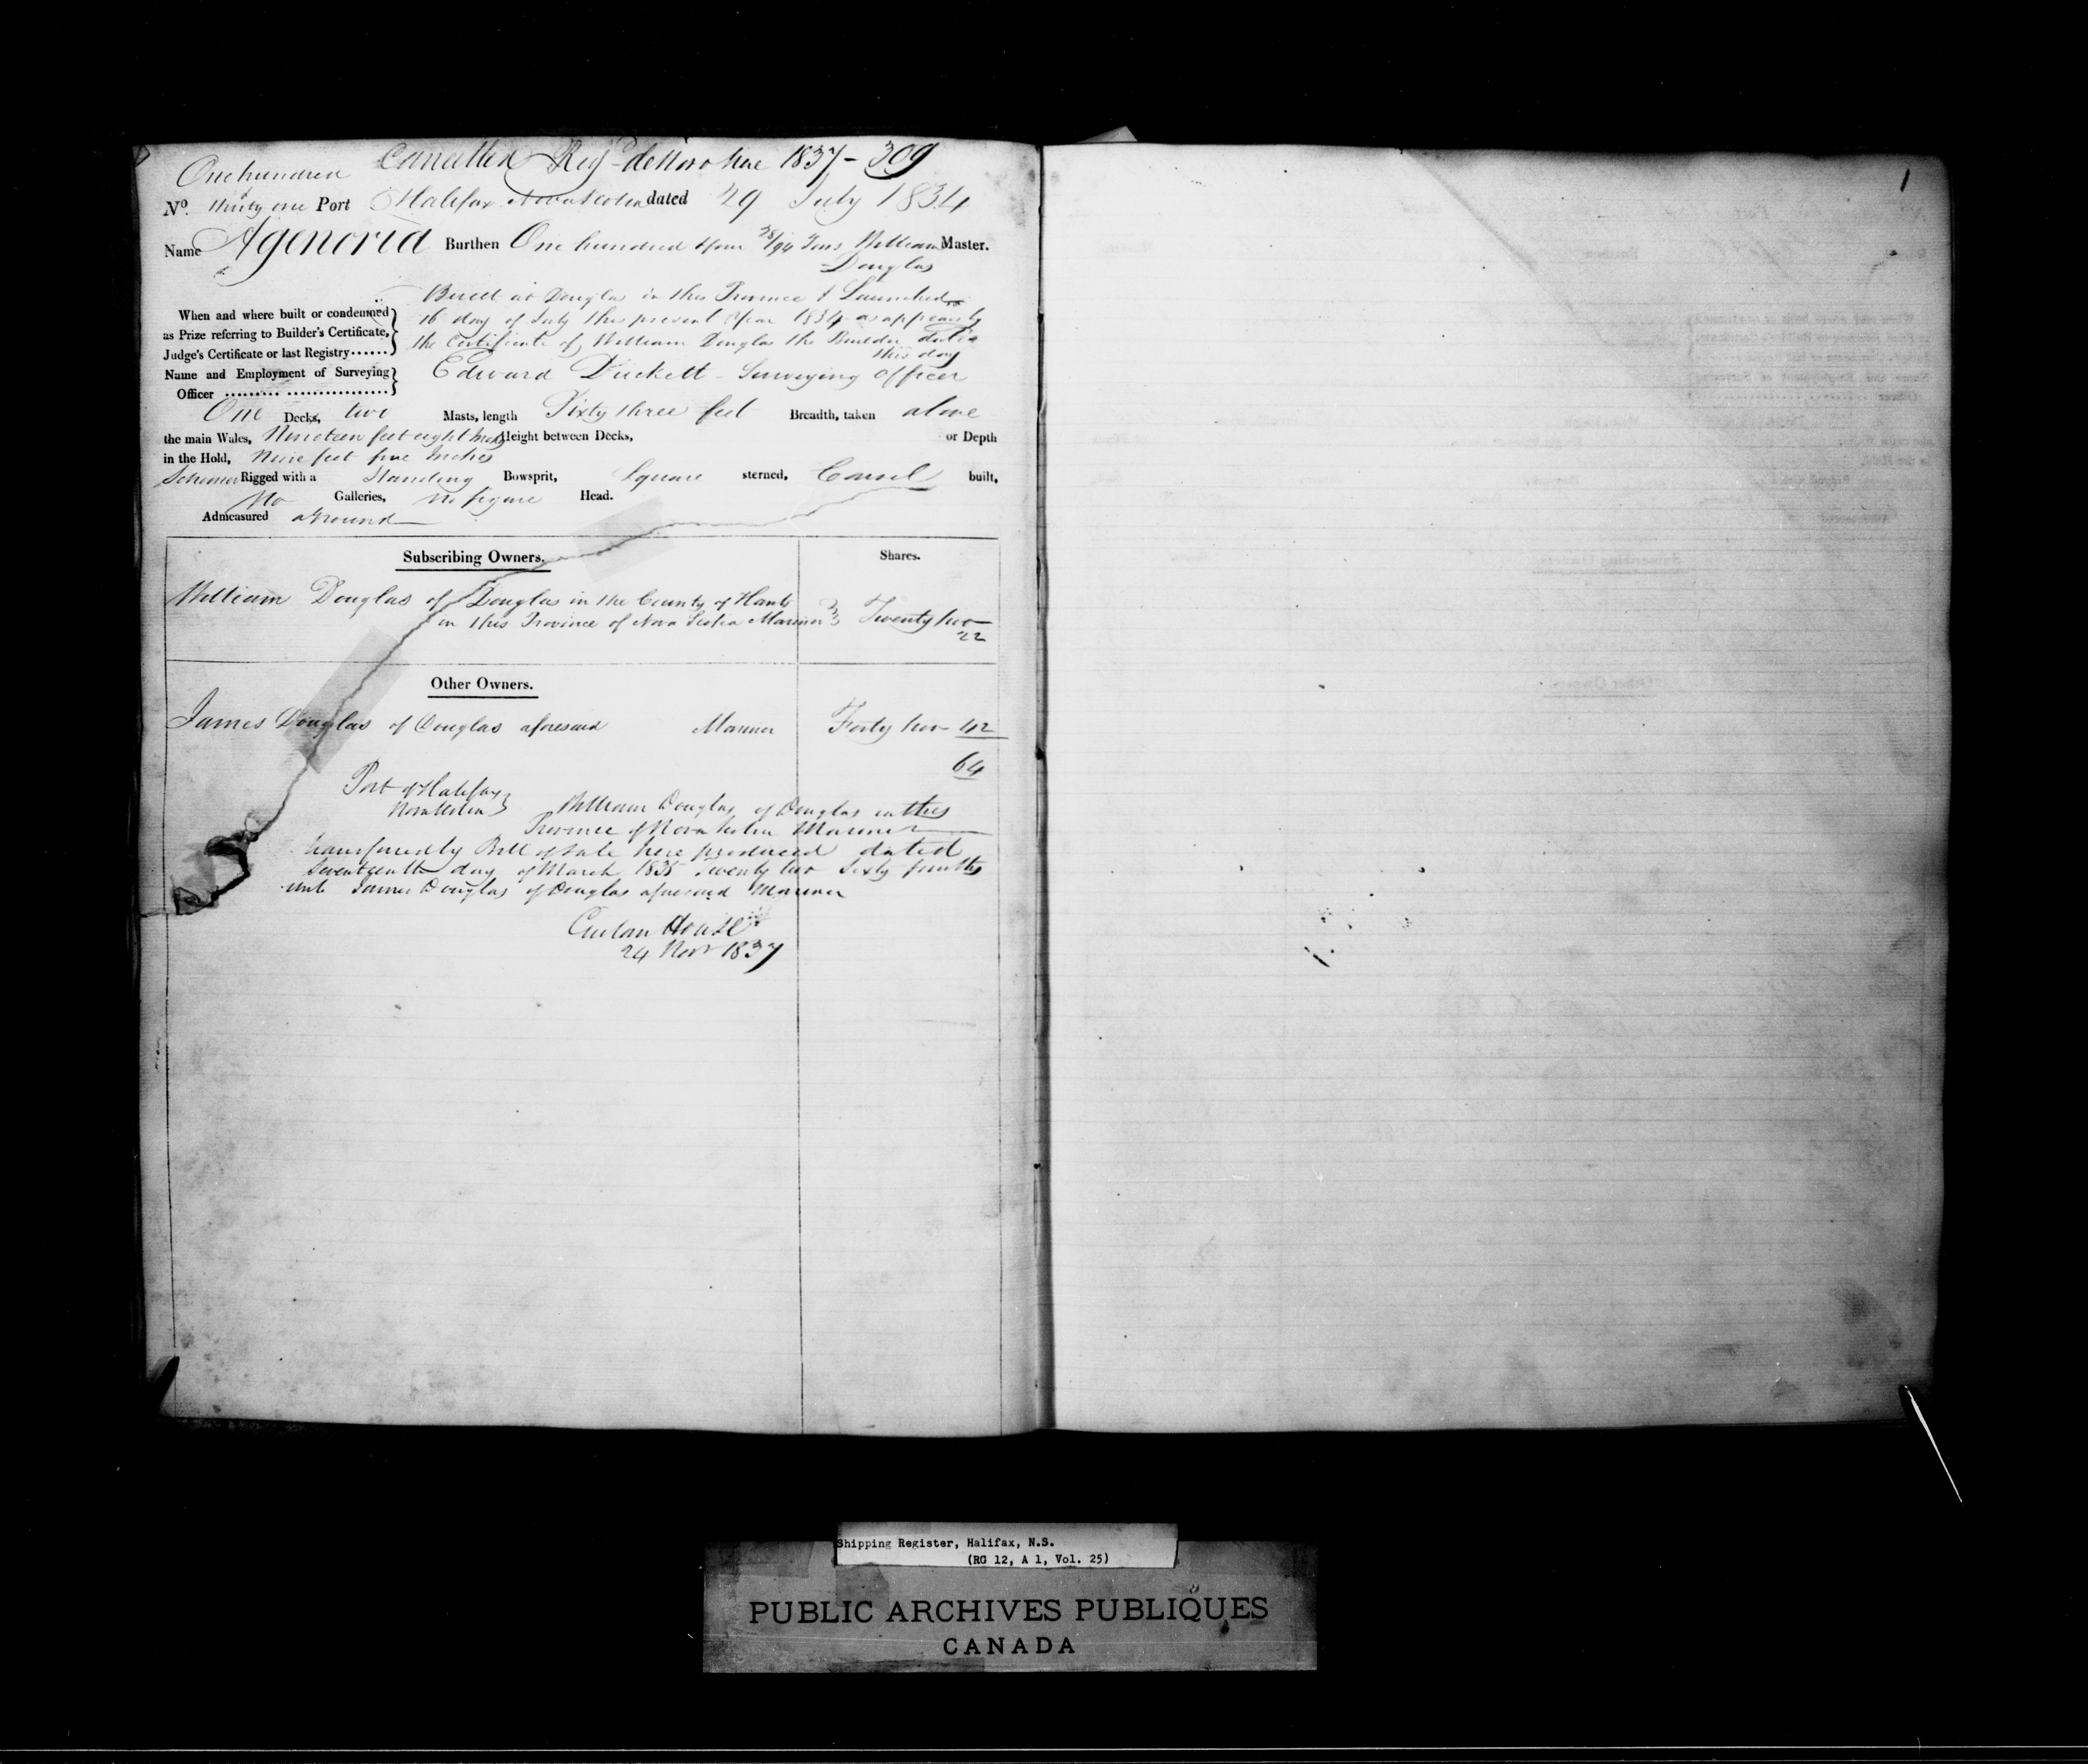 Cancelled Regd de Novo here 1837 - 309
One hundred
No. thirty one Port Halifax Nova Scotia dated 29 July 1834
Name Agenoria Burthen One hundred & four 28/94 Tons William Master.
Douglas
Built at Douglas in this Province & Launched
When and where built or condemned
16 day of July this present Year 1834 as appears by
as Prize referring to Builder's Certificate,
the Certificate of William Douglas the Builder dated
Judge's Certificate or last Registry......
this day
Name and Employment of Surveying
Edward Duckett - Surveying Officer
Officer
One Decks, two Masts, length Sixty three feet Breadth, taken above
the main Wales, Nineteen feet eight Inches Height between Decks, or Depth
in the Hold, Nine feet five Inches
Schooner Rigged with a Standing Bowsprit, Square sterned, Carvel built,
No Galleries, No figure Head.
Admeasured aground
Subscribing Owners. Shares.
William Douglas of Douglas in the County of Hants
in this Province of Nova Scotia Mariner Twenty two
22
Other Owners.
James Douglas of Douglas aforesaid Mariner Forty two 42
64
Port of Halifax
Nova Scotia
William Douglas of Douglas in this
Province of Nova Scotia Mariner
transferred by Bill of Sale here produced dated
Seventeenth day of March 1835 Twenty two Sixty fourths
unto James Douglas of Douglas aforesaid Mariner
Custom House
24 Novr 1837
1
Shipping Register, Halifax, N.S.
(RG 12, A 1, Vol. 25)
PUBLIC ARCHIVES PUBLIQUES
CANADA